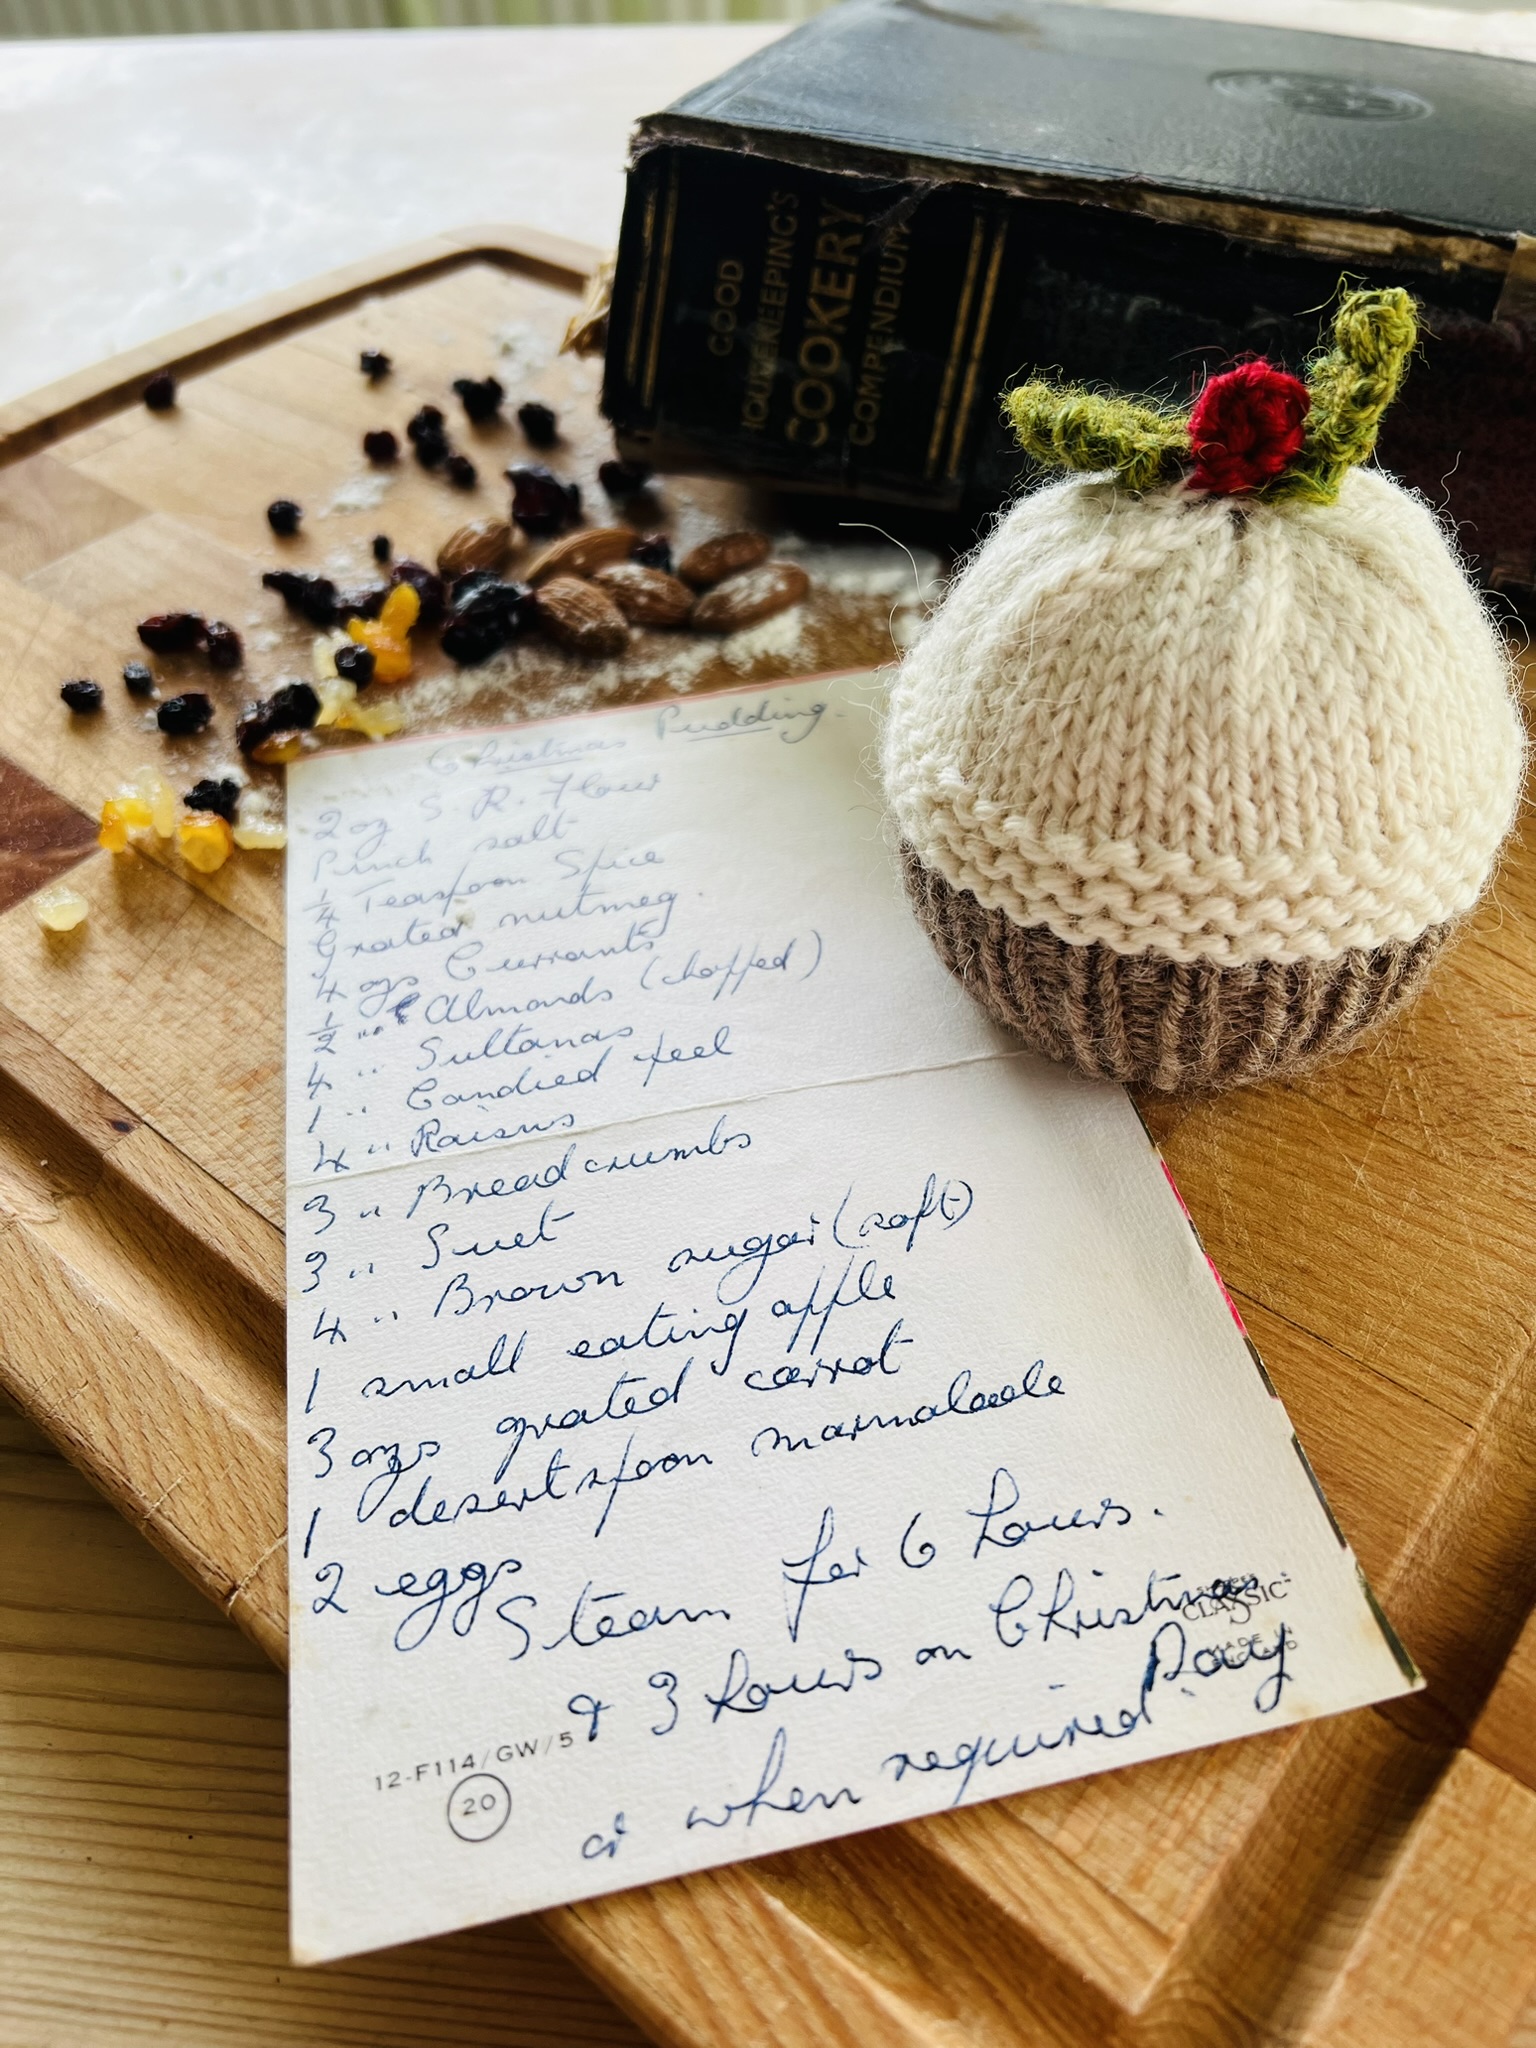 GOOD
HOUSEKEEPING'S
COOKERY
COMPENDIUM
Christmas Pudding.
2 oz S. R. Flour
Pinch salt
1/4 Teaspoon Spice
Grated nutmeg.
4 ozs Currants
1/2 " Almonds (chopped)
4 " Sultanas
1 " Candied peel
4 " Raisins
3 " Breadcrumbs
3 " Suet
4 " Brown sugar (soft)
1 small eating apple
3 ozs grated carrot
1 desertspoon marmalade
2 eggs
Steam for 6 hours.
& 3 hours on Christmas
Day
or when required
CLASSIC
MADE IN
12-F114/GW/5
20